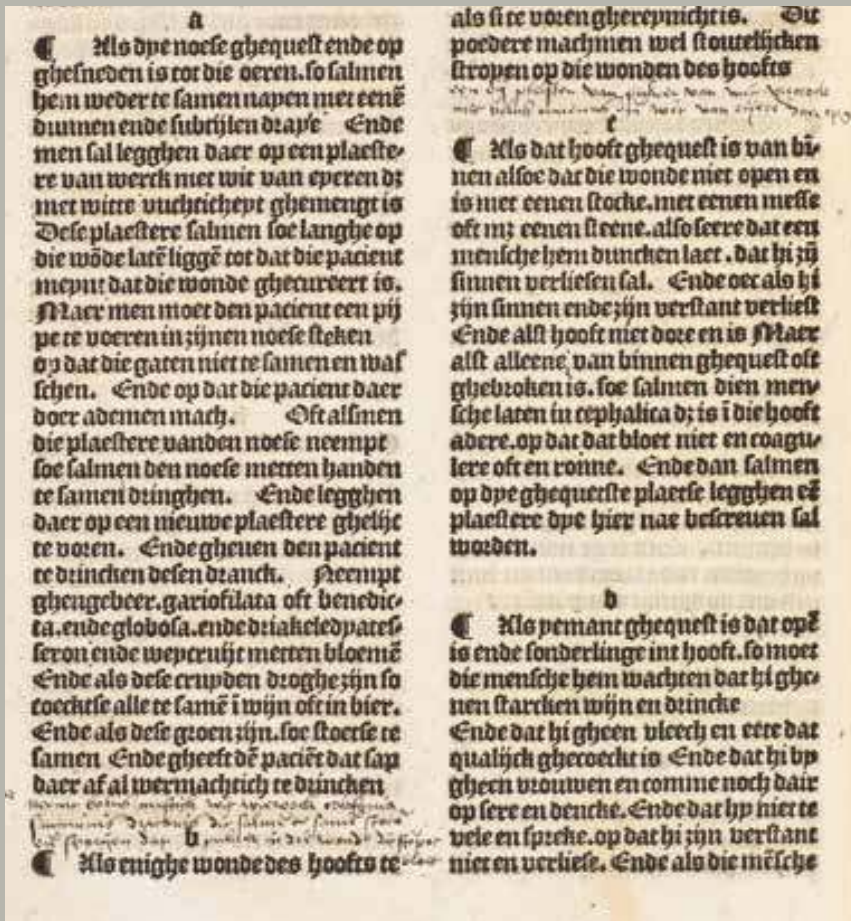 a
¶ Als dye noese ghequest ende op
ghesneden is tot die oeren.so salmen
hem weder te samen nayen met eenē
dunnen ende subtijlen draye Ende
men sal legghen daer op een plaeste-
re van werck met wit van eyeren dz
met witte vuchticheyt ghemengt is
Dese plaestere salmen soe langhe op
die wōde latē liggē tot dat die pacient
meynt dat die wonde ghecureert is.
Maer men moet den pacient een pij
pe te voeren in zijnen noese steken
op dat die gaten niet te samen en was
schen. Ende op dat die pacient daer
doer ademen mach. Oft alsmen
die plaestere vanden noese neempt
soe salmen den noese metten handen
te samen dringhen. Ende legghen
daer op een nieuwe plaestere ghelijc
te voren. Ende gheuen den pacient
te drincken desen dranck. Neempt
ghengebeer.gariofilata oft benedic-
ta.ende globosa.ende driakeledyates-
seron ende weycruijt metten bloemē
Ende als dese cruyden droghe zijn so
coecktse alle te samē ī wijn oft in bier.
Ende als dese groen zijn.soe stoetse te
samen Ende gheeft dē paciēt dat sap
daer af al wermachtich te drincken
b
¶ Als enighe wonde des hoofts te
als si te voren ghereynicht is. Dit
poedere machmen wel stoutelijcken
stroyen op die wonden des hoofts
c
¶ Als dat hooft ghequest is van bī-
nen alsoe dat die wonde niet open en
is met eenen stocke.met eenen messe
oft mz eenen steene.also seere dat een
mensche hem duncken laet.dat hi zij
sinnen verliesen sal. Ende oec als hi
zijn sinnen ende zijn verstant verliest
Ende alst hooft niet dore en is Maer
alst alleene van binnen ghequest oft
ghebroken is.soe salmen dien men-
sche laten in cephalica dz is ī die hooft
adere.op dat dat bloet niet en coagu-
lere oft en ronne. Ende dan salmen
op dye ghequetste plaetse legghen eē
plaestere dye hier nae bescreuen sal
worden.
d
¶ Als yemant ghequest is dat opē
is ende sonderlinge int hooft.so moet
die mensche hem wachten dat hi ghe-
nen starcken wijn en drincke
Ende dat hi gheen vleech en eete dat
qualijck ghecoeckt is Ende dat hi by
gheen vrouwen en comme noch dair
op sere en dencke.Ende dat hy niet te
vele en spreke.op dat hi zijn verstant
niet en verliese. Ende als die mēsche